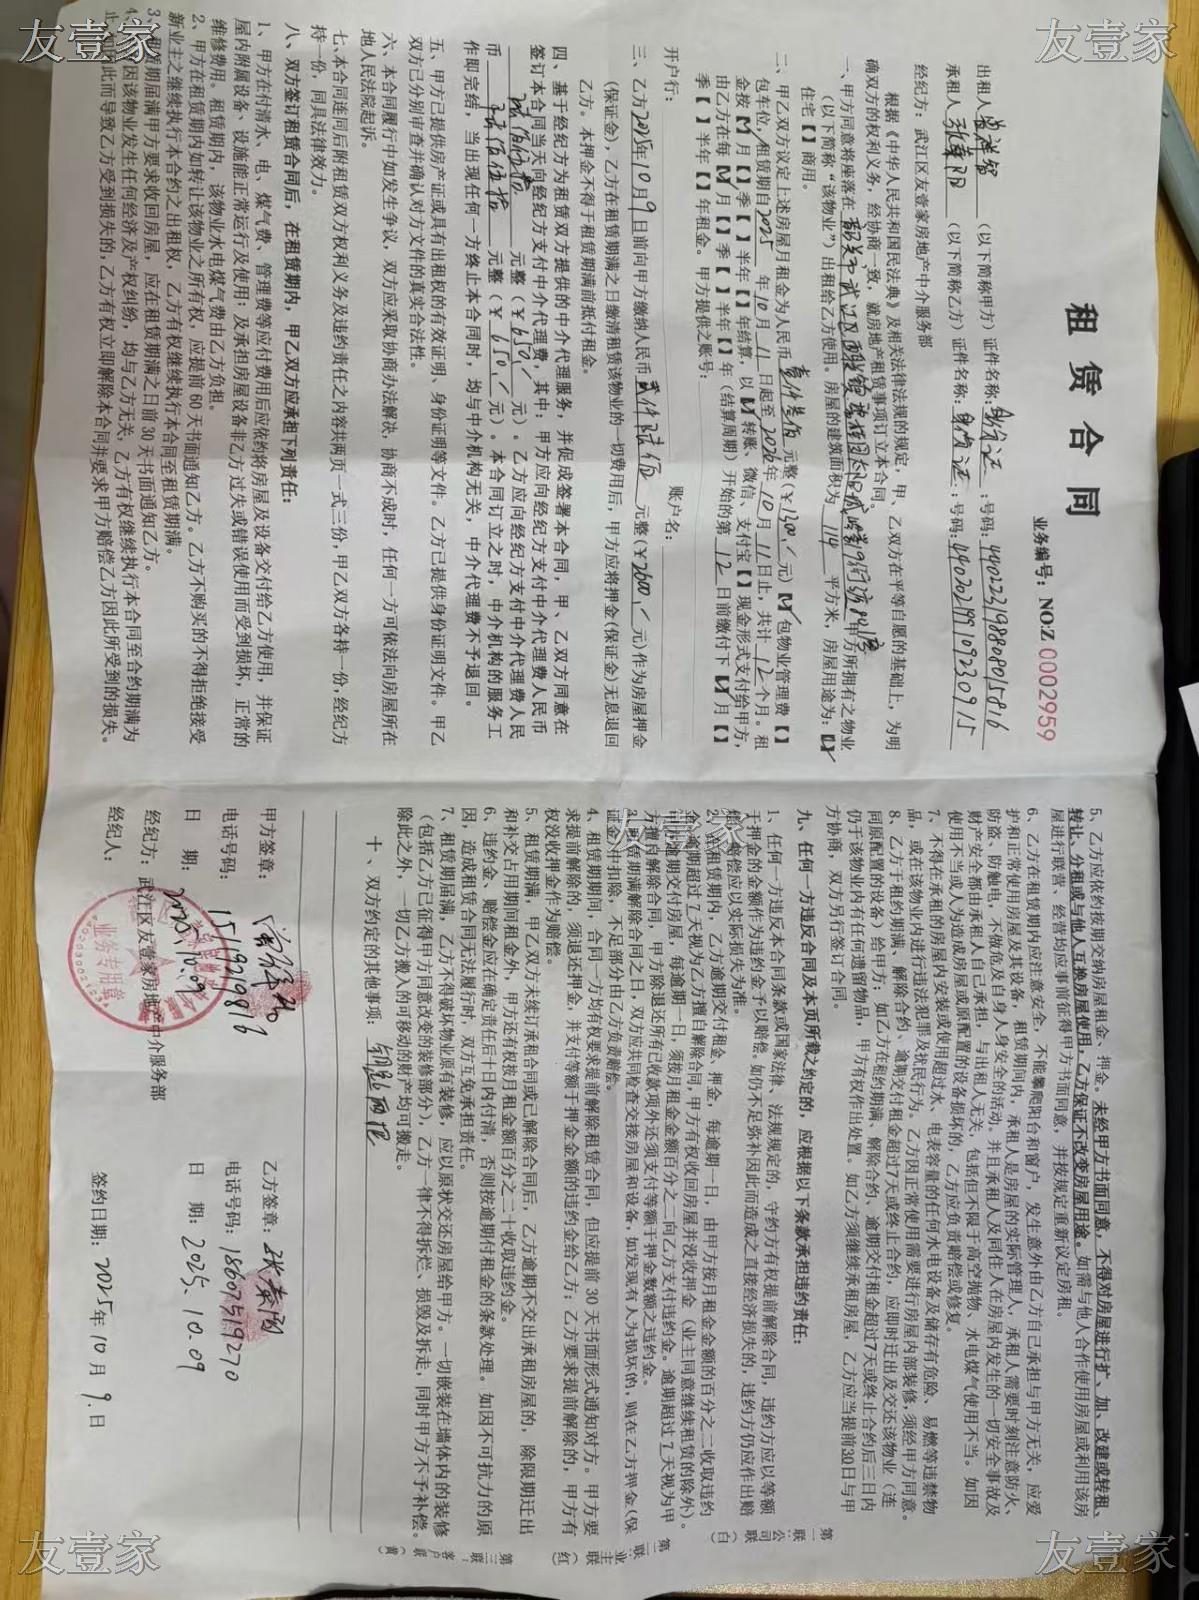 友壹家
友壹家
租赁合同
业务编号：NO:Z 0002959
出租人 （以下简称甲方）证件名称：身份证；号码：440222198808015816
承租人 （以下简称乙方）证件名称：身份证；号码：440202199109230915
经纪方：武江区友壹家房地产中介服务部
根据《中华人民共和国民法典》及相关法律法规的规定，甲、乙双方在平等自愿的基础上，为明
确双方的权利义务，经协商一致，就房地产租赁事项订立本合同。
一、甲方同意将座落在 韶关市武江区 甲方所拥有之物业
（以下简称“该物业”）出租给乙方使用。房屋的建筑面积为 114 平方米，房屋用途为：【✓】
住宅【 】商用。
二、甲乙双方议定上述房屋月租金为人民币 壹仟叁佰 元整（￥1300 元）【✓】包物业管理费【 】
包车位，租赁期自2025年10月11日起至2026年10月11日止，共计12个月。租
金按【✓】月【 】季【 】半年【 】年结算，以【✓】转账、微信、支付宝【 】现金形式支付给甲方，
由乙方在每【✓】月【 】季【 】半年【 】年（结算周期）开始的第 12 日前缴付下【✓】月【 】
季【 】半年【 】年租金。甲方提供之账号：
开户行： 账户名：
三、乙方2025年10月9日前向甲方缴纳人民币 贰仟陆佰 元整（￥2600 元）作为房屋押金
（保证金），乙方在租赁期满之日缴清租赁该物业的一切费用后，甲方应将押金(保证金)无息退回
乙方。本押金不得于租赁期满前抵付租金。
四、基于经纪方为租赁双方提供的中介代理服务，并促成签署本合同，甲、乙双方同意在
签订本合同当天向经纪方支付中介代理费，其中：甲方应向经纪方支付中介代理费人民币
陆佰伍拾 元整（￥650 元）。乙方应向经纪方支付中介代理费人民
币 陆佰伍拾 元整（￥650 元）。本合同订立之时，中介机构的服务工
作即完结，当出现任何一方终止本合同时，均与中介机构无关，中介代理费不予退回。
五、甲方已提供房产证或具有出租权的有效证明、身份证明等文件。乙方已提供身份证明文件。甲乙
双方已分别审查并确认对方文件的真实合法性。
六、本合同履行中如发生争议，双方应采取协商办法解决，协商不成时，任何一方可依法向房屋所在
地人民法院起诉。
七、本合同连同后附租赁双方权利义务及违约责任之内容共两页一式三份，甲乙双方各持一份，经纪方
持一份，同具法律效力。
八、双方签订租赁合同后，在租赁期内，甲乙双方应承担下列责任：
1、甲方在付清水、电、煤气费、管理费等应付费用后应依约将房屋及设备交付给乙方使用，并保证
屋内附属设备、设施能正常运行及使用；及承担房屋设备非乙方过失或错误使用而受到损坏，正常的
维修费用。租赁期内，该物业水电煤气费由乙方负担。
2、甲方在租赁期内如转让该物业之所有权，应提前60天书面通知乙方。乙方不购买的不得拒绝接受
新业主之继续执行本合约之出租权，乙方有权继续执行本合同至租赁期满。
3、租赁期届满甲方要求收回房屋，应在租赁期满之日前30天书面通知乙方。
4、如因该物业发生任何经济及产权纠纷，均与乙方无关，乙方有权继续执行本合同至合约期满为
止，如因此而导致乙方受到损失的，乙方有权立即解除本合同并要求甲方赔偿乙方因此所受到的损失。
5、乙方应依约按期交纳房屋租金、押金。未经甲方书面同意，不得对房屋进行扩、加、改建或转租、
转让、分租或与他人互换房屋使用，乙方保证不改变房屋用途。如需与他人合作使用房屋或利用该房
屋进行联营、经营均应事前征得甲方书面同意，并按规定重新议定房租。
6、乙方在租赁期内应注意安全，不能攀爬阳台和窗户，发生意外由乙方自己承担与甲方无关，应爱
护和正常使用房屋及其设备，租赁期间内，承租人是房屋的实际管理人，承租人需要时刻注意防火、
防盗、防触电，不做危及自身人身安全的活动，并且承租人及同住人在房屋内发生的一切安全事故及
财产安全都由承租人自己承担，与出租人无关，包括但不限于高空抛物，水电煤气使用不当。如因
使用不当或人为造成房屋或原配置的设备损坏的，乙方应负责赔偿或修复。
7、不得在承租的房屋内安装或使用超过水、电表容量的任何水电设备及储存有危险、易燃等违禁物
品，或在该物业内进行违法犯罪及扰民行为。乙方因正常使用需要进行房屋内部装修，须经甲方同意。
8、乙方于租约期满、解除合约、逾期交付租金超过7天或终止合约，应即时迁出及交还该物业（连
同原配置的设备）给甲方；如乙方在租约期满、解除合约、逾期交付租金超过7天或终止合约后三日内
仍于该物业内有任何遗留物品，甲方有权作出处置。如乙方须继续承租房屋，乙方应当提前30日与甲
方协商，双方另行签订合同。
九、任何一方违反合同及本页所载之约定的，应根据以下条款承担违约责任：
1、任何一方违反本合同条款或国家法律、法规规定的，守约方有权提前解除合同，违约方应以等额
于押金的金额作为违约金予以赔偿。如仍不足弥补因此而造成之直接经济损失的，违约方仍应作出赔
偿，赔偿应以实际损失为准。
2、在租赁期内，乙方逾期交付租金，押金，每逾期一日，由甲方按月租金金额的百分之二收取违约
金；逾期超过7天视为乙方擅自解除合同，甲方有权收回房屋并没收押金（业主同意继续租赁的除外）。
甲方逾期交付房屋，每逾期一日，须按月租金金额百分之二向乙方支付违约金。逾期超过7天视为甲
方擅自解除合同，甲方除退还所有已收款项外还须支付等额于押金数额之违约金。
3、租赁期满解除合同之日，双方应共同检查交接房屋和设备，如发现有人为损坏的，则在乙方押金(保
证金)中扣除，不足部分由乙方负责赔偿。
4、租赁期期间，合同一方均有权要求提前解除租赁合同，但应提前30天书面形式通知对方。甲方要
求提前解除的，须退还押金，并支付等额于押金金额的违约金给乙方；乙方要求提前解除的，甲方有
权没收押金作为赔偿。
5、租赁期满，甲乙双方未续订承租合同或已解除合同后，乙方逾期不交出承租房屋的，除限期迁出
和补交占用期间租金外，甲方还有权按月租金额百分之二十收取违约金。
6、违约金、赔偿金应在确定责任后十日内付清，否则按逾期付租金的条款处理。如因不可抗力的原
因，造成租赁合同无法履行时，双方互免承担责任。
7、租赁期届满，乙方不得破坏物业原有装修，应以原状交还房屋给甲方。一切嵌装在墙体内的装修
（包括乙方已征得甲方同意改变的装修部分），乙方一律不得拆烂、损毁及拆走，同时甲方不予补偿。
除此之外，一切乙方搬入的可移动的财产均可搬走。
十、双方约定的其他事项：
甲方签章： 乙方签章：
电话号码：15119729816 电话号码：18607519270
日 期：2025.10.09 日 期：2025.10.09
经纪方：武江区友壹家房地产中介服务部
经纪人： 签约日期：2025年10月9日
业务专用章
第一联：公司联（白）
第二联：业主联（红）
第三联：客户联（黄）
友壹家
友壹家
友壹家